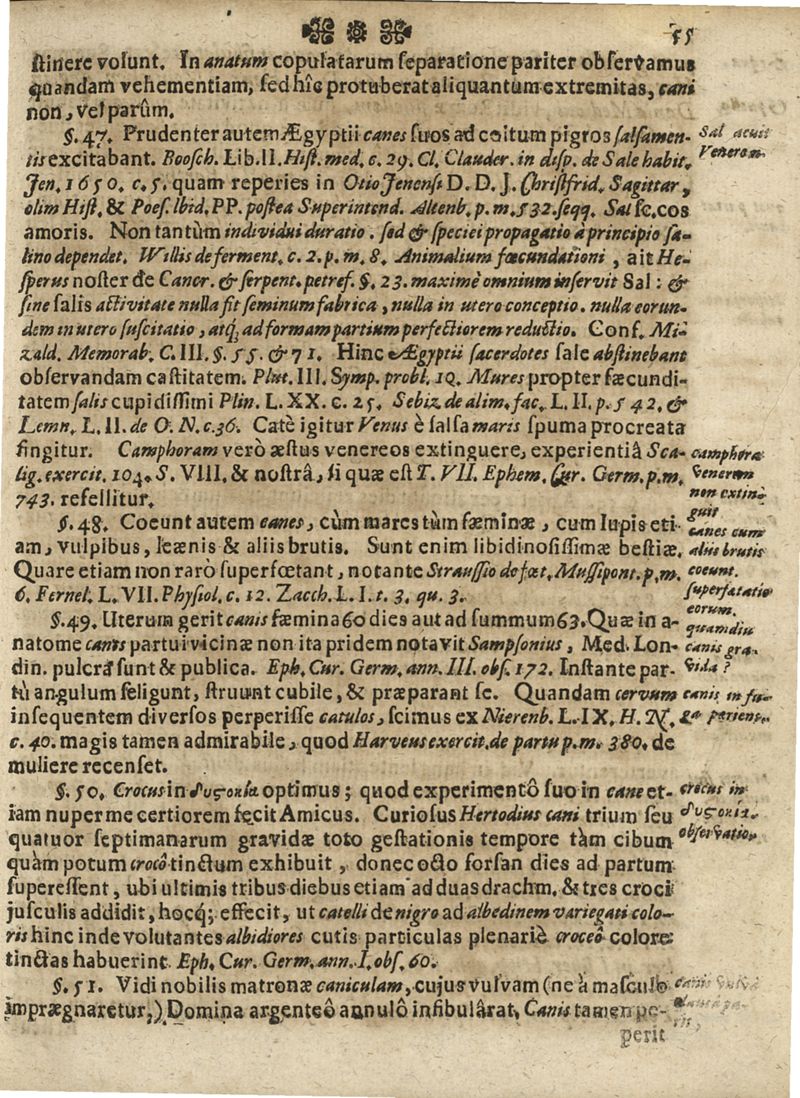 55
stinere volunt. In anatum copulatarum separatione pariter observamus
quandam vehementiam, sed hîc protuberat aliquantum extremitas, cani
non, vel parûm.
§. 47. Prudenter autem Ægyptii canes suos ad coitum pigros salsamen-
tis excitabant. Boosch. Lib. II. Hist. med. c. 29. Cl. Clauder. in disp. de Sale habit.
Jen. 1650. c. 5. quam reperies in Otio Jenensi D. D. J. Christfrid. Sagittar,
olim Hist. & Poes. Ibid. PP. postea Superintend. Altenb. p. m. 532. seqq. Sal sc. cos
amoris. Non tantùm individui duratio. sed & speciei propagatio à principio sa-
lino dependet. Willis de ferment. c. 2. p. m. 8. Animalium fœcundationi, ait He-
sperus noster de Cancr. & serpent. petref. §. 23. maximè omnium inservit Sal: &
sine salis activitate nulla fit seminum fabrica, nulla in utero conceptio. nulla eorun-
dem in utero suscitatio, atq; ad formam partium perfectiorem reductio. Conf. Mi-
zald. Memorab. C. III. §. 55. & 71. Hinc Ægyptii sacerdotes sale abstinebant
observandam castitatem. Plut. III. Symp. probl. 10. Mures propter fæcundi-
tatem salis cupidissimi Plin. L. XX. c. 25. Sebiz. de alim. fac. L. II. p. 542. &
Lemn. L. II. de O. N. c. 36. Catè igitur Venus è salsa maris spuma procreata
fingitur. Camphoram verò æstus venereos extinguere, experientiâ Sca-
lig. exercit. 104. S. VIII. & nostrâ, si quæ est T. VII. Ephem. Cur. Germ. p. m.
743. refellitur.
§. 48. Coeunt autem canes, cùm mares tùm fæminæ, cum lupis eti-
am, vulpibus, leænis & aliis brutis. Sunt enim libidinosissimæ bestiæ.
Quare etiam non rarò superfœtant, notante Straussio de fœt. Mussipont. p. m.
6. Fernel. L. VII. Physiol. c. 12. Zacch. L. I. t. 3. qu. 3.
§. 49. Uterum gerit canis fæmina 60 dies aut ad summum 63. Quæ in a-
natome canis partui vicinæ non ita pridem notavit Sampsonius, Med. Lon-
din. pulcra sunt & publica. Eph. Cur. Germ. ann. III. obs. 172. Instante par-
tû angulum seligunt, struunt cubile, & præparant se. Quandam cervum
insequentem diversos perperisse catulos, scimus ex Nierenb. L. IX. H. N.
c. 40. magis tamen admirabile, quod Harveus exercit. de partu p. m. 380. de
muliere recenset.
§. 50. Crocus in δυςτοκία optimus; quod experimentô suo in cane et-
iam nuper me certiorem fecit Amicus. Curiosus Hertodius cani trium seu
quatuor septimanarum gravidæ toto gestationis tempore tàm cibum
quàm potum crocô tinctum exhibuit, donec octo forsan dies ad partum
superessent, ubi ultimis tribus diebus etiam ad duas drachm. & tres croci
jusculis addidit, hocq; effecit, ut catelli de nigro ad albedinem variegati colo-
ris hinc inde volutantes albidiores cutis particulas plenariè croceô colore
tinctas habuerint. Eph. Cur. Germ. ann. I. obs. 60.
§. 51. Vidi nobilis matronæ caniculam, cujus vulvam (ne à masculo
imprægnaretur,) Domina argenteô annulô infibulârat, Canis tamen pe-
perit
Sal acuit
Venerem.
camphora
Venerem
non extin-
guit
canes cum
aliis brutis
coeunt.
superfætatio
eorum.
quamdiu
canis gra-
vida?
canis in fu-
ga pariens.
crocus in
δυςτοκία.
observatio.
canis vulva